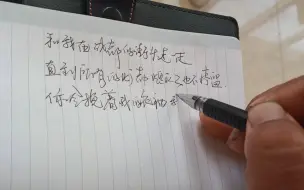 和我在成都的街头走
直到所有的灯都熄灭了也不停留
你会挽着我的衣袖